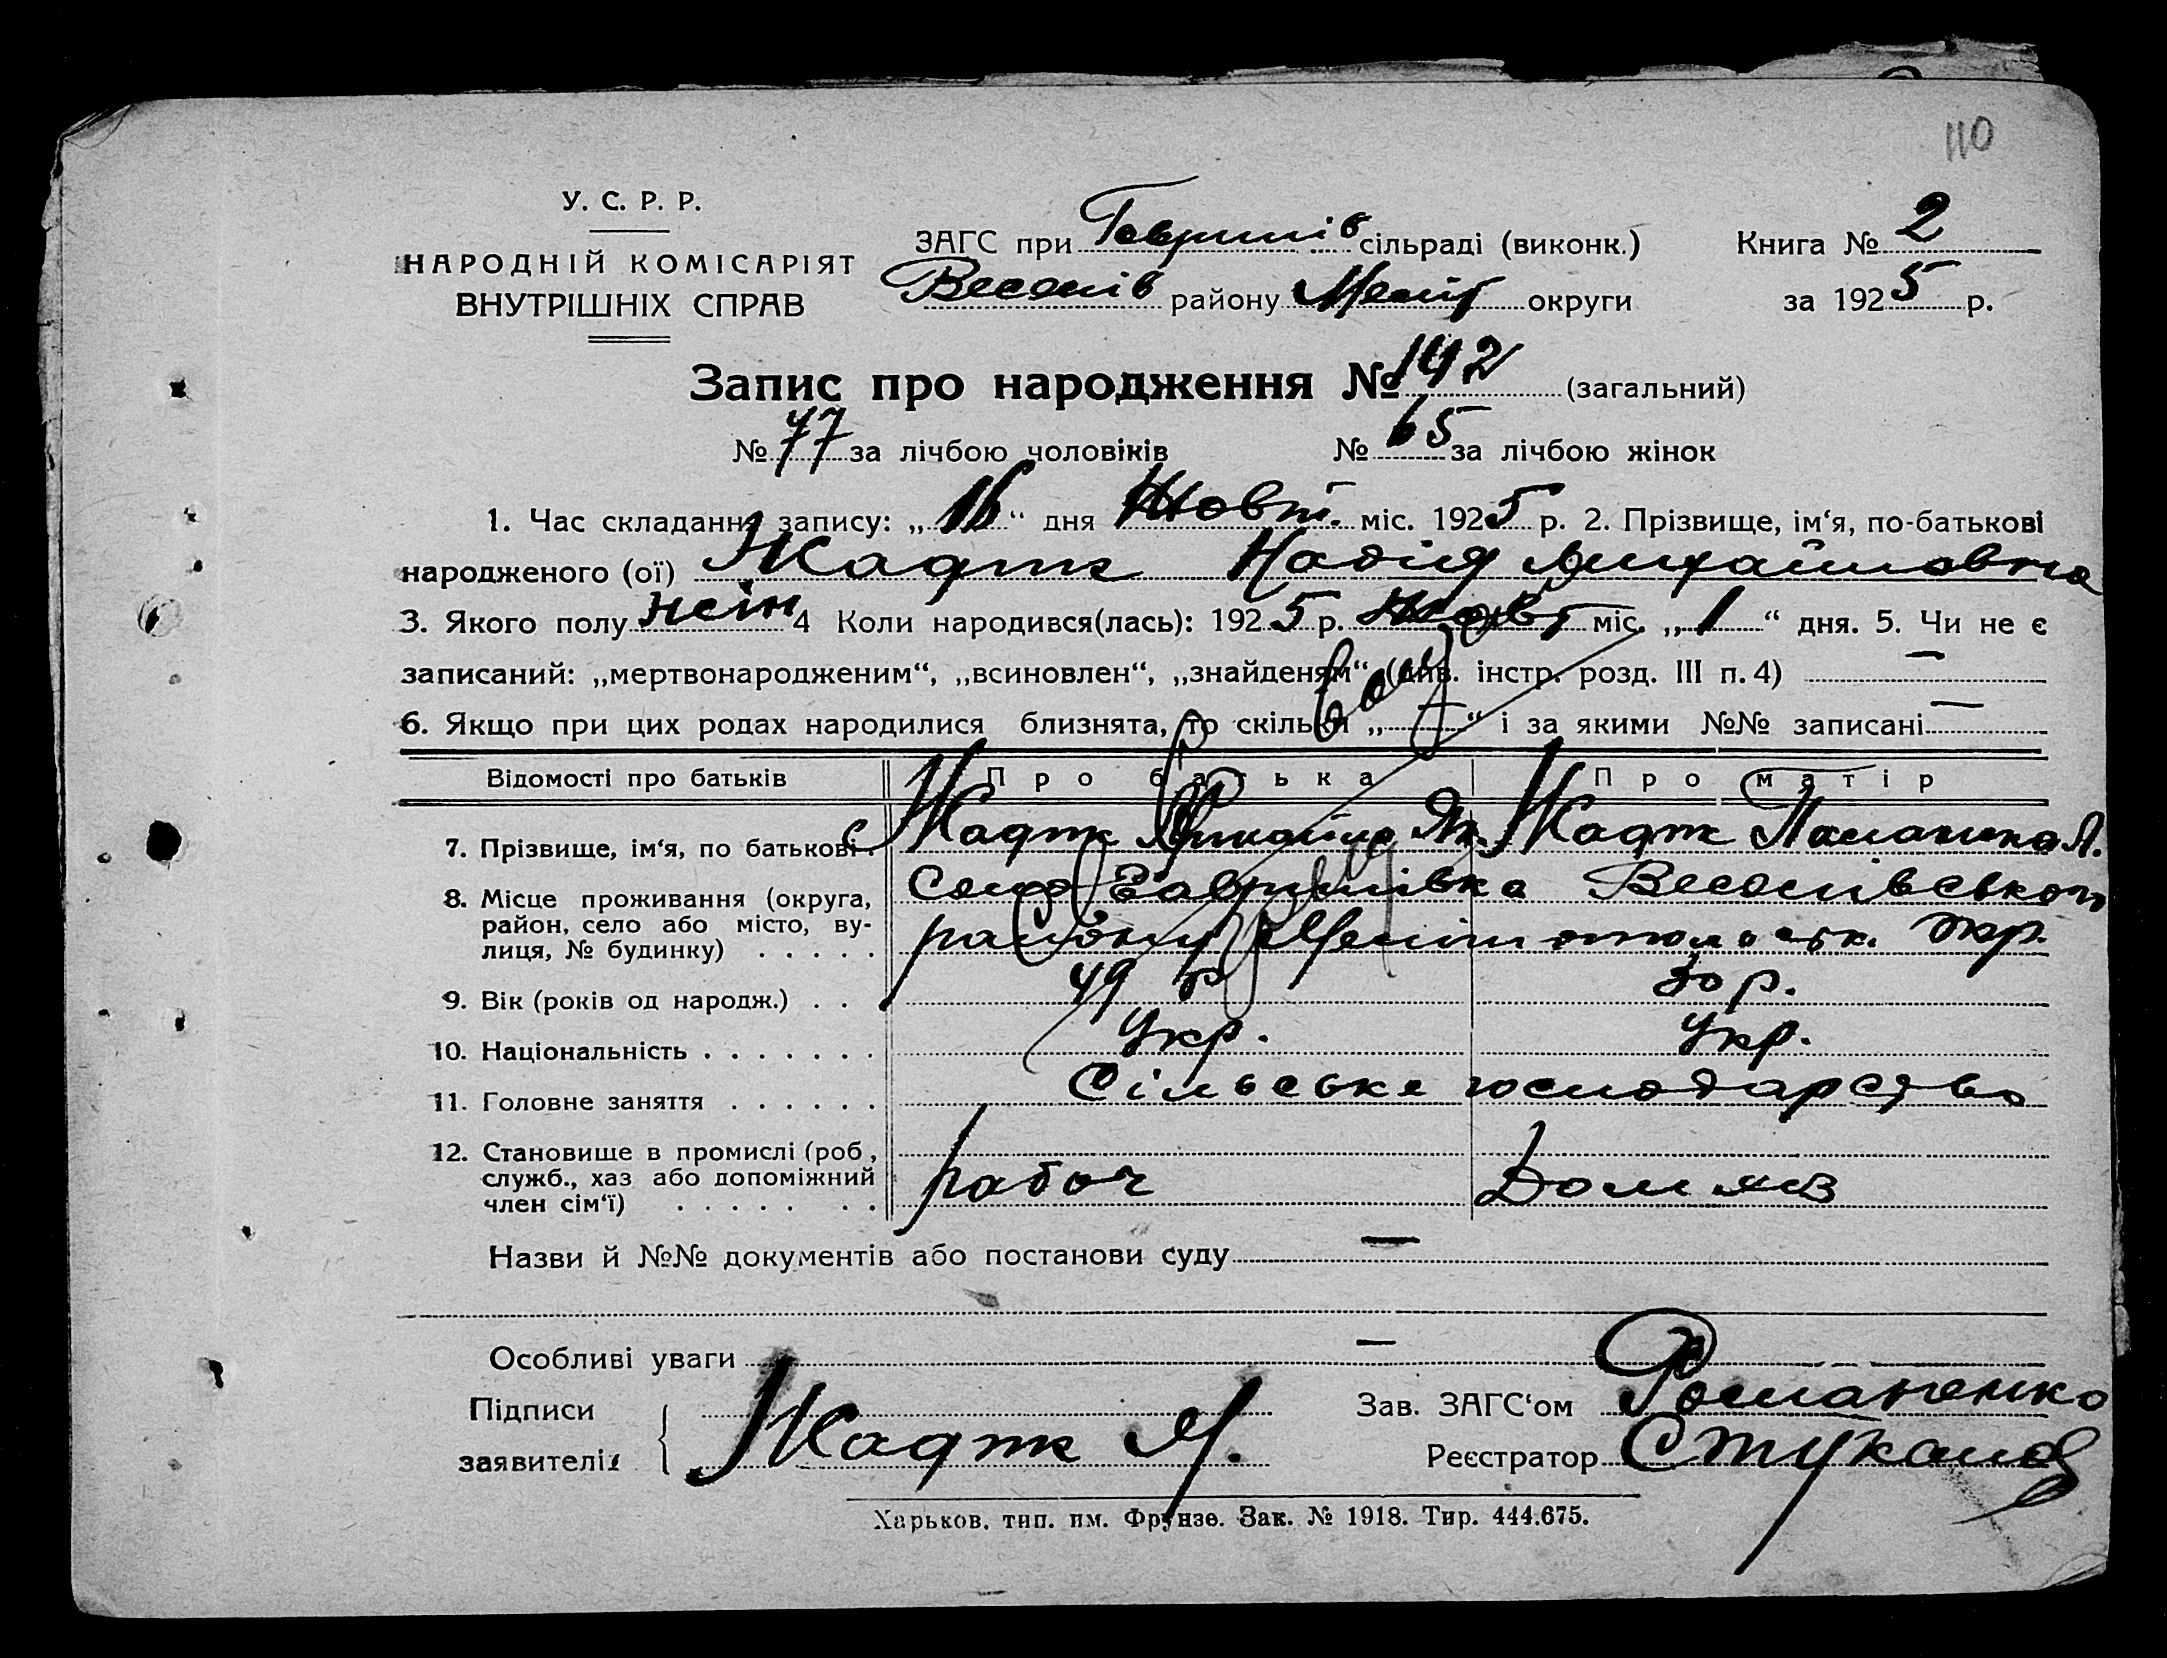 110
У. С. Р. Р.
НАРОДНІЙ КОМІСАРІЯТ
ВНУТРІШНІХ СПРАВ
ЗАГС при Гаврилів сільраді (виконк.) Книга № 2
Веселів району Меліт округи за 1925 р.
Запис про народження № 142 (загальний)
№ 77 за лічбою чоловіків № 65 за лічбою жінок
1. Час складання запису: „16“ дня Жовт. міс. 1925 р. 2. Прізвище, ім‘я, по-батькові
народженого (ої) Надія Михайловна
3. Якого полу жін 4 Коли народився(лась): 1925 р. Жовт міс. „1“ дня. 5. Чи не є
записаний: „мертвонародженим“, „всиновлен“, „знайденям“ (див. інстр. розд. III п. 4) —
6. Якщо при цих родах народилися близнята, то скільки „—“ і за якими №№ записані —
Відомості про батьків Про батька Про матір
7. Прізвище, ім‘я, по батькові . Михайло Як.
8. Місце проживання (округа, Село Гаврилівка Веселівського
район, село або місто, ву- району Мелітопольськ. окр.
лиця, № будинку) . . . . .
9. Вік (років од народж.) . . . 49 р 30 р.
10. Національність . . . . . . . Укр. Укр.
11. Головне заняття . . . . . . Сільське господарство
12. Становише в промислі (роб,
служб., хаз або допоміжний рабоч Дом
член сім‘ї) . . . . . . .
Назви й №№ документів або постанови суду —
Особливі уваги —
Підписи Зав. ЗАГС‘ом Романенко
заявителів М. Реєстратор
Харьков, тип. им. Фрунзе. Зак. № 1918. Тир. 444.675.